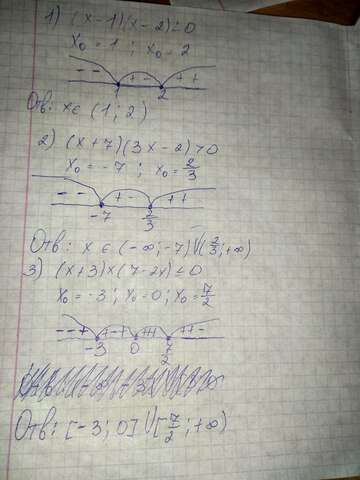 1) (x-1)(x-2)<0
x₀ = 1 ; x₀ = 2
- - + - + +
1 2
Отв: x ∈ (1; 2)
2) (x+7)(3x-2)>0
x₀ = -7 ; x₀ = 2/3
- - + - + +
-7 2/3
Отв: x ∈ (-∞; -7)∪(2/3; +∞)
3) (x+3)x(7-2x) ≤ 0
x₀ = -3 ; x₀ = 0 ; x₀ = 7/2
- - + + - + + + + + + -
-3 0 7/2
Отв: [-3; 0]∪[7/2; +∞)